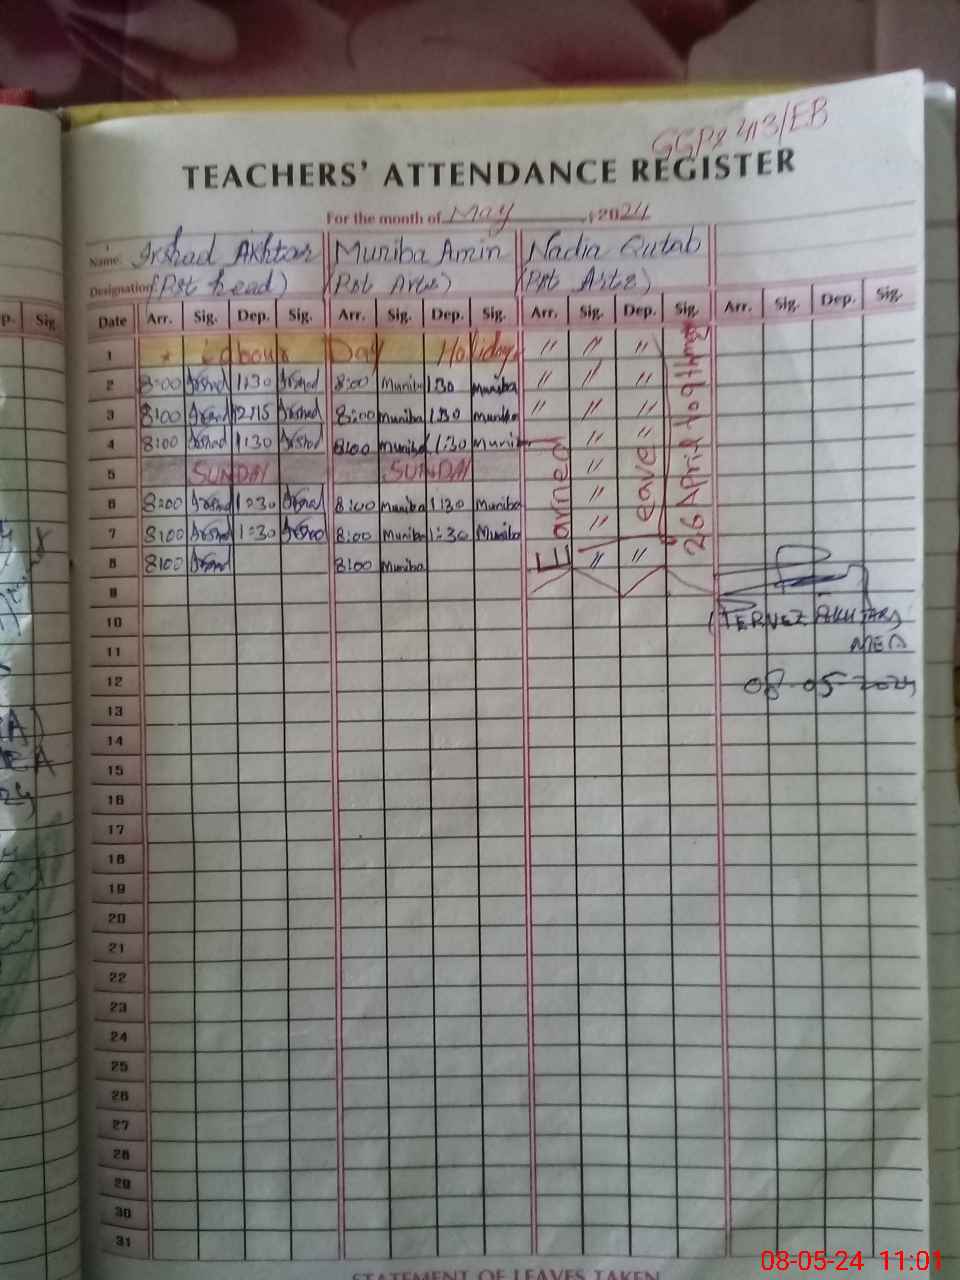 GGPS 413/EB
TEACHERS' ATTENDANCE REGISTER
For the month of May 2024
Name. Irshad Akhtar Muniba Amin Nadia Qutab
Designation (Pst head) (Pst Arts) (Pst Arts)
p. Sig
Date Arr. Sig. Dep. Sig. Arr. Sig. Dep. Sig. Arr. Sig. Dep. Sig. Arr. Sig. Dep. Sig.
1 * Labour Day Holiday " " "
2 8:00 Irshad 1:30 Irshad 8:00 Muniba 1:30 Muniba " " "
3 8:00 Irshad 12:15 Irshad 8:00 Muniba 1:30 Muniba " " "
4 8:00 Irshad 1:30 Irshad 8:00 Muniba 1:30 Muniba " "
5 SUNDAY SUNDAY "
6 8:00 Irshad 1:30 Irshad 8:00 Muniba 1:30 Muniba "
7 8:00 Irshad 1:30 Irshad 8:00 Muniba 1:30 Muniba "
8 8:00 Irshad 8:00 Muniba " "
Earned
leave
26 April to 9th may
9
10
(PERVEZ AKHTAR)
11
MEA
12
08-05-2024
13
14
15
16
17
18
19
20
21
22
23
24
25
26
27
28
29
30
31
STATEMENT OF LEAVES TAKEN
08-05-24 11:01